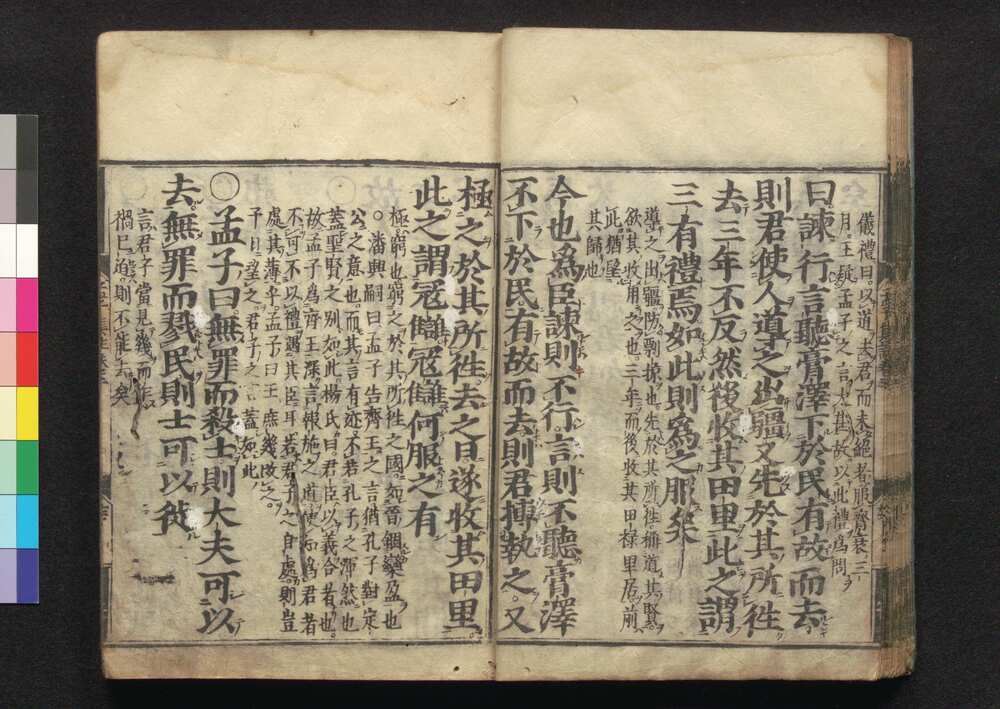 儀禮曰以道去君而未絕者服齊衰三
月王疑孟子之言太甚故以此禮爲問
曰諫行言聽膏澤下於民有故而去
則君使人導之出疆又先於其所往
去三年不反然後收其田里此之謂
三有禮焉如此則爲之服矣
導之出疆防剽掠也先於其所往稱道其賢
欲其收用之也三年而後收其田祿里居前
此猶望
其歸也
今也爲臣諫則不行言則不聽膏澤
不下於民有故而去則君搏執之又
極之於其所往去之日遂收其田里
此之謂寇讎寇讎何服之有
極窮也窮之於其所往之國如晉錮欒盈也
○潘興嗣曰孟子告齊王之言猶孔子對定
公之意也而其言有迹不若孔子之渾然也
蓋聖賢之別如此楊氏曰君臣以義合者也
故孟子爲齊王深言報施之道使知爲君者
不可不以禮遇其臣耳若君子之自處則豈
處其薄乎孟子曰王庶幾改之
予日望之君子之言蓋如此
○孟子曰無罪而殺士則大夫可以
去無罪而戮民則士可以徙
言君子當見幾而作
禍已迫則不能去矣